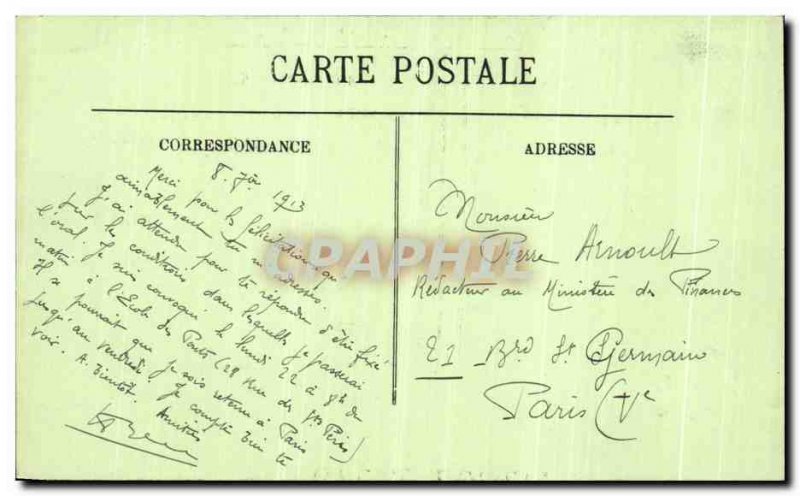 CARTE POSTALE
CORRESPONDANCE
8. 7bre 1913
Merci pour les félicitations que
aimablement tu m'adresses.
J'ai attendu pour te répondre d'être fixé
sur les conditions dans lesquelles je passerai
l'oral. Je suis convoqué le lundi 22 à 8h du
matin à l'Ecole des Ponts (28 Rue des Sts Pères)
Il se pourrait que je sois retenu à Paris
jusqu'au vendredi. Je compte bien te
voir. A bientôt. Amitiés
ADRESSE
Monsieur
Pierre Arnoult
Rédacteur au Ministère des Finances
21 Bd St Germain
Paris (Ve
CPAPHIL